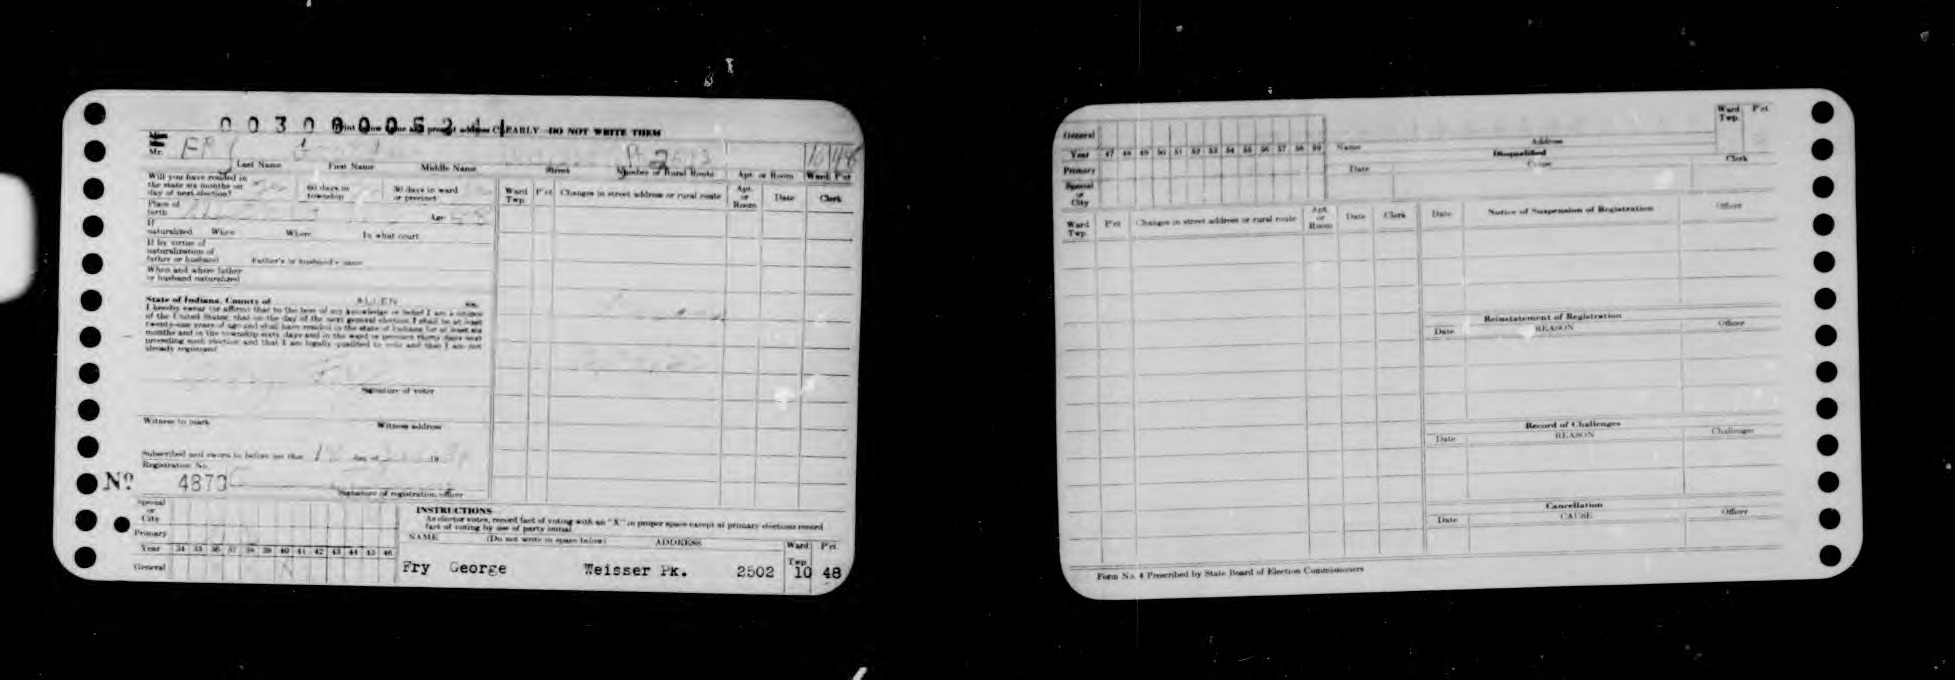 00300005244
Print your name and present address CLEARLY—DO NOT WRITE THEM
Miss
Mrs.
Mr. FRY 10 48
Last Name First Name Middle Name Street Number or Rural Route Apt. or Room Ward P'ct.
Will you have resided in
the state six months on
day of next election? 60 days in
township 30 days in ward
or precinct
Place of
birth Age 58
If
naturalized When Where In what court
If by virtue of
naturalization of
father or husband Father's or husband's name
When and where father
or husband naturalized
Ward
Twp. P'ct. Changes in street address or rural route Apt.
or
Room Date Clerk
State of Indiana, County of ALLEN ss.
I hereby swear (or affirm) that to the best of my knowledge or belief I am a citizen
of the United States; that on the day of the next general election I shall be at least
twenty-one years of age and shall have resided in the state of Indiana for at least six
months and in the township sixty days and in the ward or precinct thirty days next
preceding such election and that I am legally qualified to vote and that I am not
already registered.
Signature of voter
Witness to mark Witness address
Subscribed and sworn to before me this day of 19
Registration No.
Nº 4873
Signature of registration officer
Special
or
City
Primary
Year 34 35 36 37 38 39 40 41 42 43 44 45 46
General
INSTRUCTIONS
As elector votes, record fact of voting with an "X" in proper space except at primary elections record
fact of voting by use of party initial
NAME (Do not write in space below) ADDRESS Ward
Twp. P'ct.
Fry George Weisser Pk. 2502 10 48
General
Year 47 48 49 50 51 52 53 54 55 56 57 58 59
Primary
Special
or
City
Name Address Ward
Twp. P'ct.
Disqualified
Date Cause Clerk
Ward
Twp. P'ct. Changes in street address or rural route Apt.
or
Room Date Clerk
Date Notice of Suspension of Registration Officer
Reinstatement of Registration
Date REASON Officer
Record of Challenges
Date REASON Challenger
Cancellation
Date CAUSE Officer
Form No. 4 Prescribed by State Board of Election Commissioners